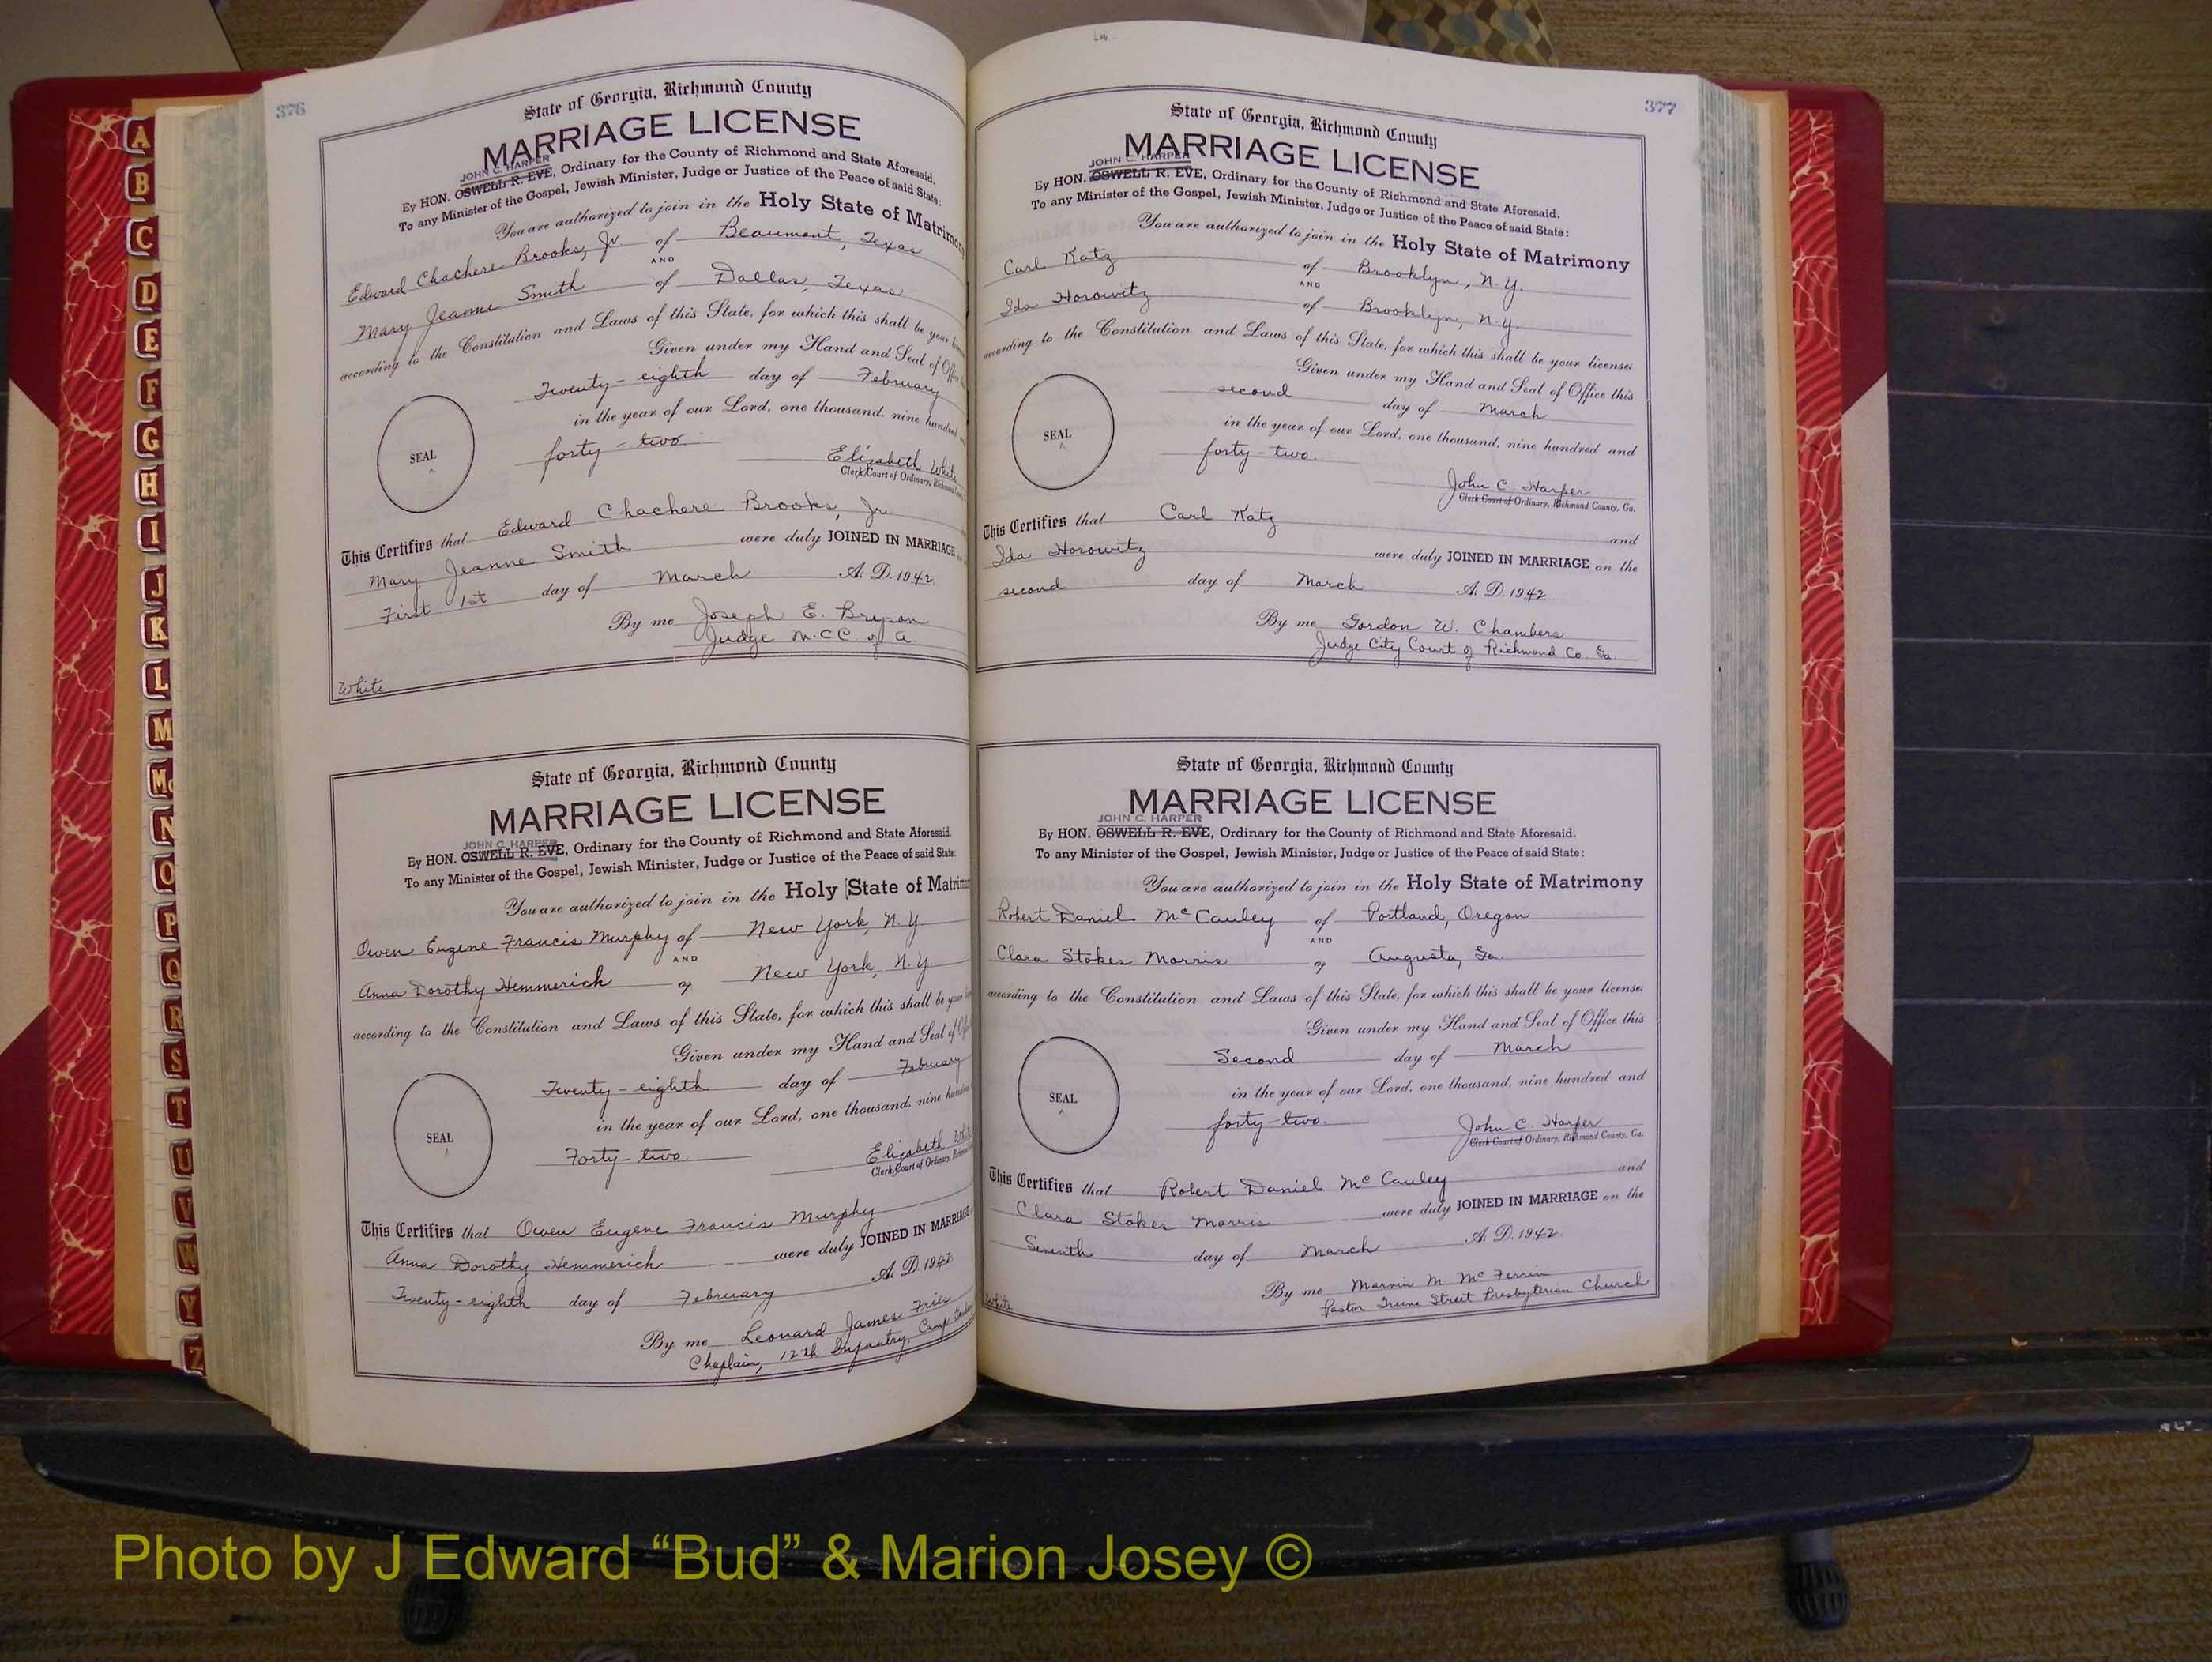 376
State of Georgia, Richmond County
MARRIAGE LICENSE
JOHN C. HARPER
By HON. OSWELL R. EVE, Ordinary for the County of Richmond and State Aforesaid.
To any Minister of the Gospel, Jewish Minister, Judge or Justice of the Peace of said State:
You are authorized to join in the Holy State of Matrimony
Edward Chachere Brooks, Jr. of Beaumont, Texas
AND
Mary Jeanne Smith of Dallas, Texas
according to the Constitution and Laws of this State, for which this shall be your
Given under my Hand and Seal of
Twenty-eighth day of February
in the year of our Lord, one thousand, nine hundred
forty-two
SEAL
Elizabeth White
Clerk Court of Ordinary, Richmond
This Certifies that Edward Chachere Brooks, Jr.
Mary Jeanne Smith were duly JOINED IN MARRIAGE
First 1st day of March A. D. 1942
By me Joseph E. Bryson
Judge M.C.C. of A.
White
State of Georgia, Richmond County
MARRIAGE LICENSE
JOHN C. HARPER
By HON. OSWELL R. EVE, Ordinary for the County of Richmond and State Aforesaid.
To any Minister of the Gospel, Jewish Minister, Judge or Justice of the Peace of said State:
You are authorized to join in the Holy State of
Owen Eugene Francis Murphy of New York, N.Y.
AND
Anna Dorothy Hemmerich of New York, N.Y.
according to the Constitution and Laws of this State, for which this shall be
Given under my Hand and Seal of
Twenty-eighth day of February
in the year of our Lord, one thousand, nine
Forty-two.
SEAL
Elizabeth
Clerk Court of Ordinary,
This Certifies that Owen Eugene Francis Murphy
Anna Dorothy Hemmerich were duly JOINED IN MARRIAGE
Twenty-eighth day of February A. D. 1942
By me Leonard James Fries
Chaplain, 12th Infantry, Camp
377
State of Georgia, Richmond County
MARRIAGE LICENSE
JOHN C. HARPER
By HON. OSWELL R. EVE, Ordinary for the County of Richmond and State Aforesaid.
To any Minister of the Gospel, Jewish Minister, Judge or Justice of the Peace of said State:
You are authorized to join in the Holy State of Matrimony
Carl Katz of Brooklyn, N.Y.
AND
Ida Horowitz of Brooklyn, N.Y.
according to the Constitution and Laws of this State, for which this shall be your license
Given under my Hand and Seal of Office this
second day of March
in the year of our Lord, one thousand, nine hundred and
forty-two.
SEAL
John C. Harper
Clerk Court of Ordinary, Richmond County, Ga.
This Certifies that Carl Katz and
Ida Horowitz were duly JOINED IN MARRIAGE on the
second day of March A. D. 1942
By me Gordon W. Chambers
Judge City Court of Richmond Co. Ga.
State of Georgia, Richmond County
MARRIAGE LICENSE
JOHN C. HARPER
By HON. OSWELL R. EVE, Ordinary for the County of Richmond and State Aforesaid.
To any Minister of the Gospel, Jewish Minister, Judge or Justice of the Peace of said State:
You are authorized to join in the Holy State of Matrimony
Robert Daniel McCauley of Portland, Oregon
AND
Clara Stokes Morris of Augusta, Ga.
according to the Constitution and Laws of this State, for which this shall be your license
Given under my Hand and Seal of Office this
Second day of March
in the year of our Lord, one thousand, nine hundred and
forty-two.
SEAL
John C. Harper
Clerk Court of Ordinary, Richmond County, Ga.
This Certifies that Robert Daniel McCauley and
Clara Stokes Morris were duly JOINED IN MARRIAGE on the
Seventh day of March A. D. 1942.
By me Marvin M. McFerrin
Pastor Greene Street Presbyterian Church
White
A
B
C
D
E
F
G
H
I
J
K
L
M
Mc
N
O
P
Q
R
S
T
U
V
W
Y
Z
Photo by J Edward “Bud” & Marion Josey ©